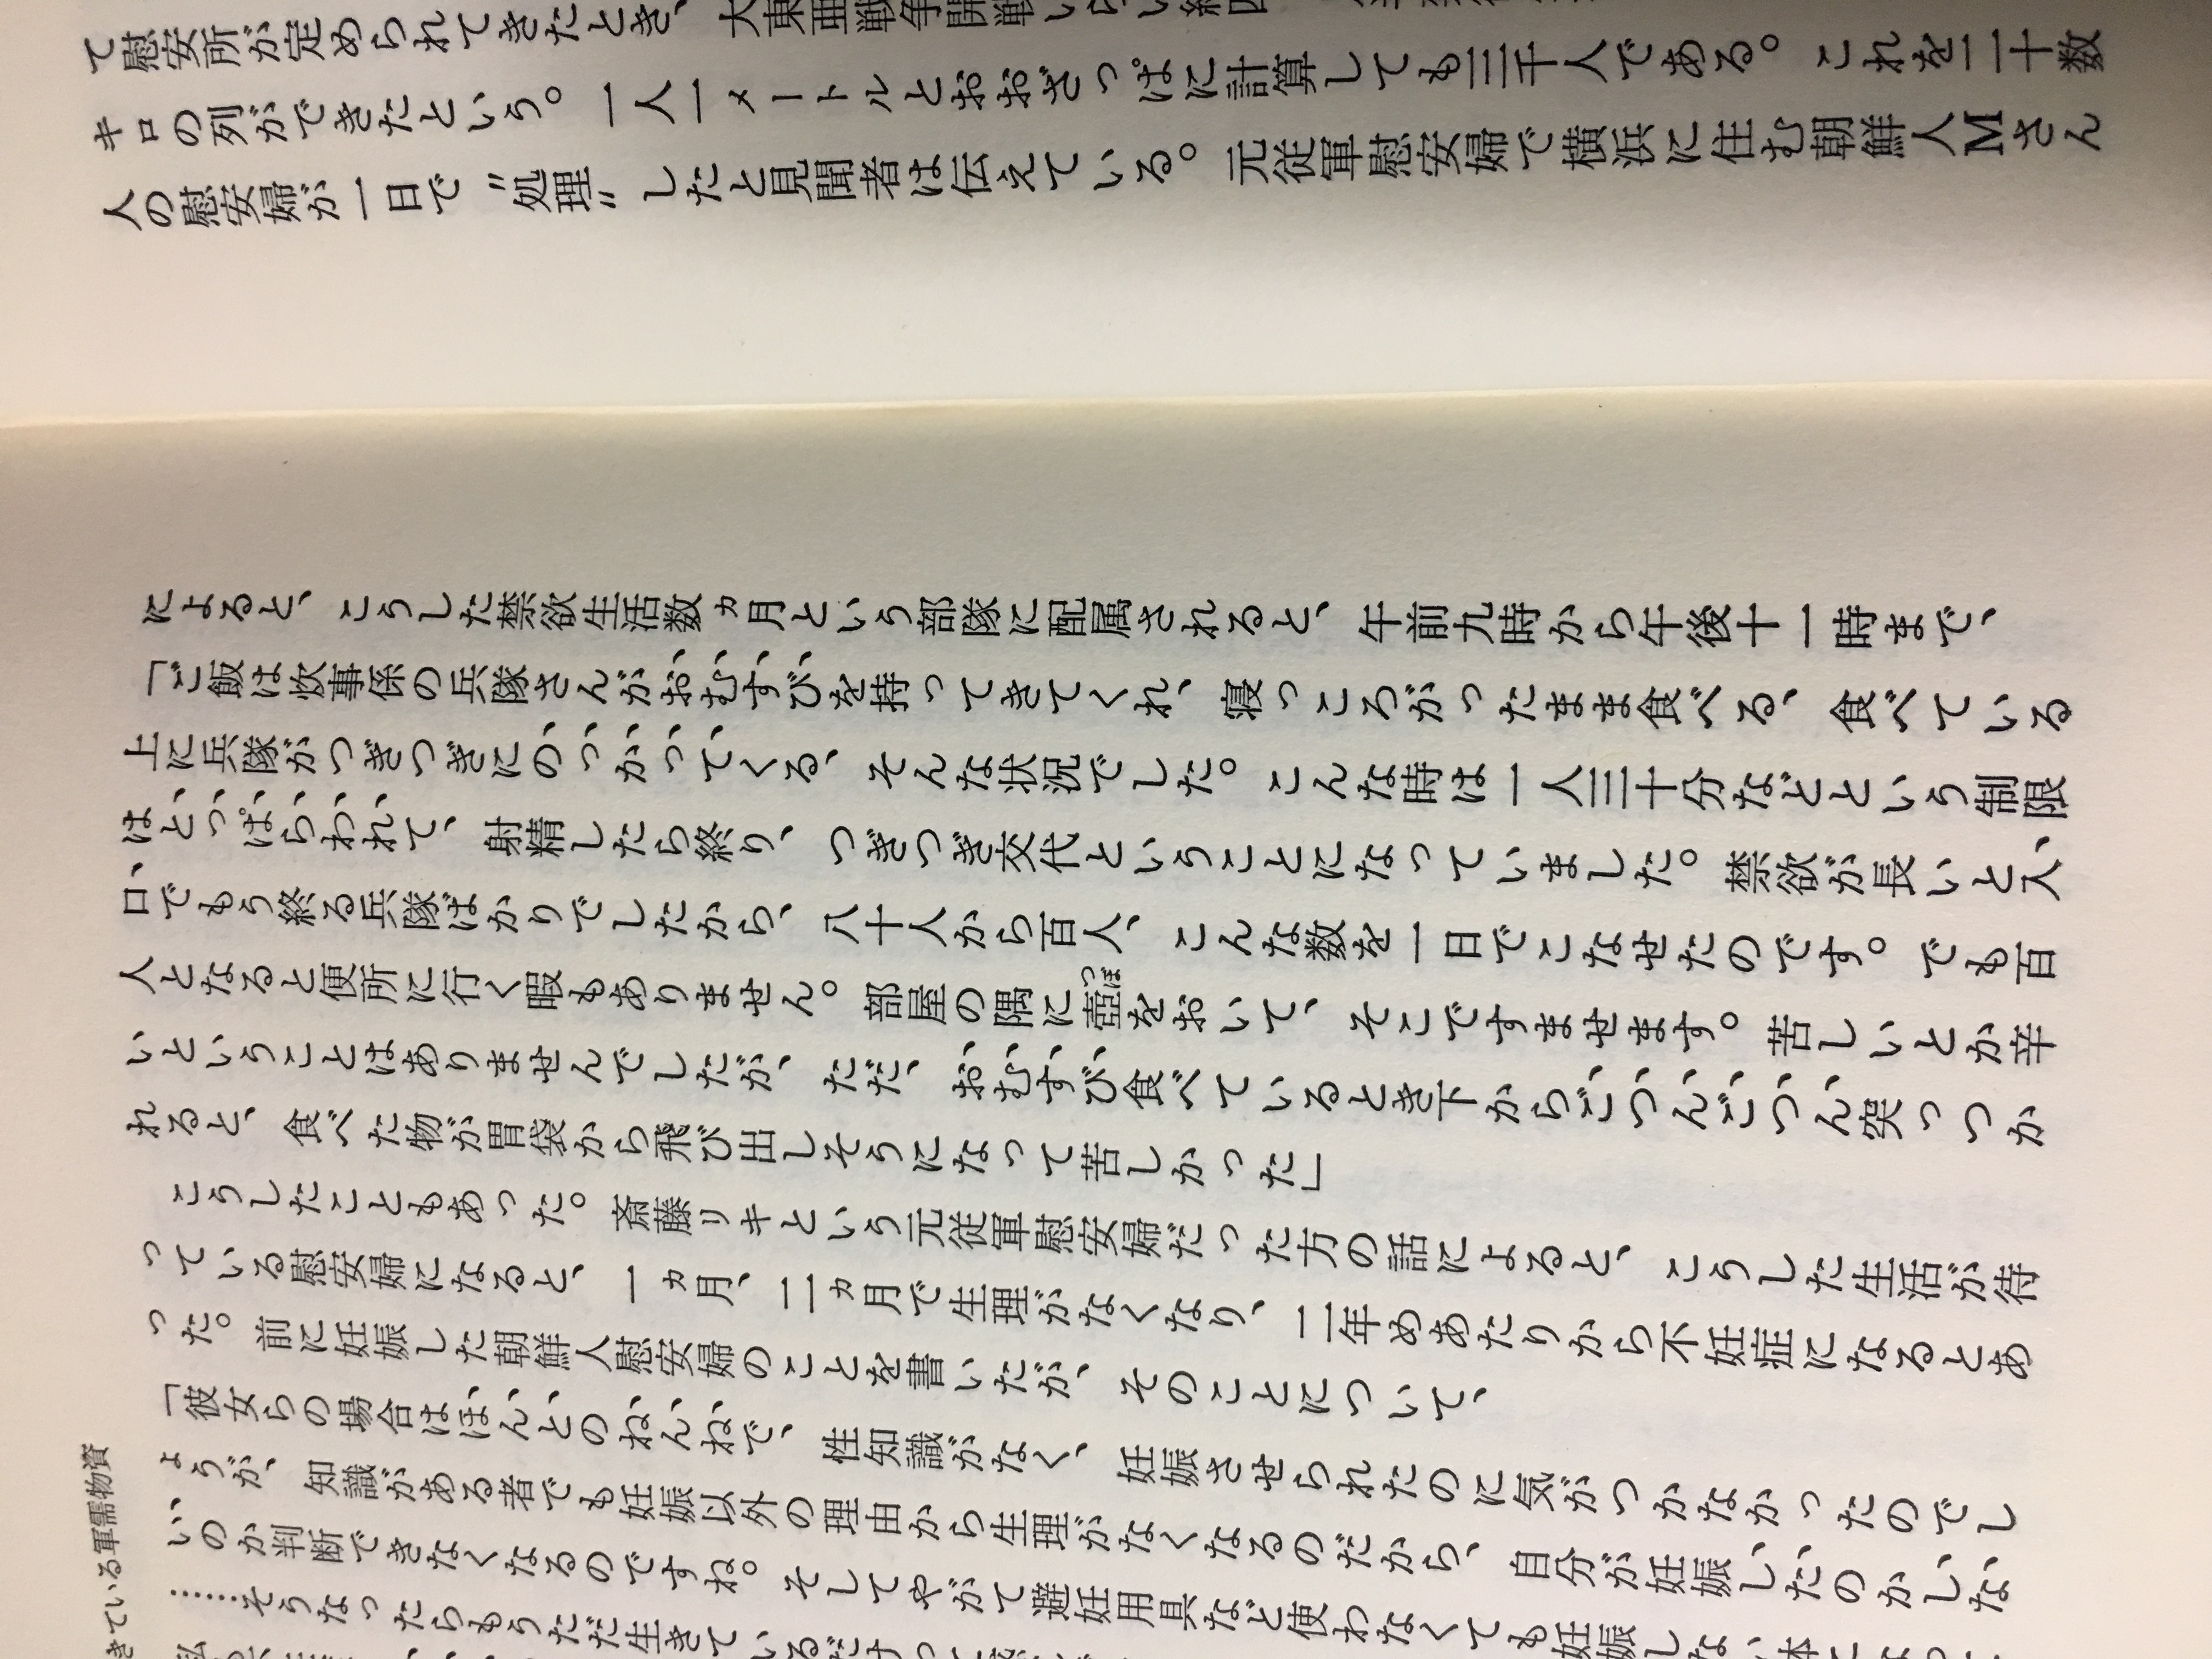 て慰安所が定められてきたとき、大東亜戦争開戦いらい
キロの列ができたという。一人一メートルとおおざっぱに計算しても三千人である。これを二十数
人の慰安婦が一日で〝処理〟したと見聞者は伝えている。元従軍慰安婦で横浜に住む朝鮮人Mさん
によると、こうした禁欲生活数ヵ月という部隊に配属されると、午前九時から午後十一時まで、
「ご飯は炊事係の兵隊さんがおむすびを持ってきてくれ、寝っころがったまま食べる、食べている
上に兵隊がつぎつぎにのっかってくる、そんな状況でした。こんな時は一人三十分などという制限
はとっぱらわれて、射精したら終り、つぎつぎ交代ということになっていました。禁欲が長いと入
口でもう終る兵隊ばかりでしたから、八十人から百人、こんな数を一日でこなせたのです。でも百
人となると便所に行く暇もありません。部屋の隅に壺をおいて、そこですませます。苦しいとか辛
いということはありませんでしたが、ただ、おむすび食べているとき下からごつんごつん突っつか
れると、食べた物が胃袋から飛び出しそうになって苦しかった」
こうしたこともあった。斎藤リキという元従軍慰安婦だった方の話によると、こうした生活が待
っている慰安婦になると、一ヵ月、二ヵ月で生理がなくなり、二年めあたりから不妊症になるとあ
った。前に妊娠した朝鮮人慰安婦のことを書いたが、そのことについて、
「彼女らの場合はほんとのねんねで、性知識がなく、妊娠させられたのに気がつかなかったのでし
ょうが、知識がある者でも妊娠以外の理由から生理がなくなるのだから、自分が妊娠したのかしな
いのか判断できなくなるのですね。そしてやがて避妊用具など使わなくても妊娠しない体になっ
……そうなったらもうただ生きているだけ
きている軍需物資